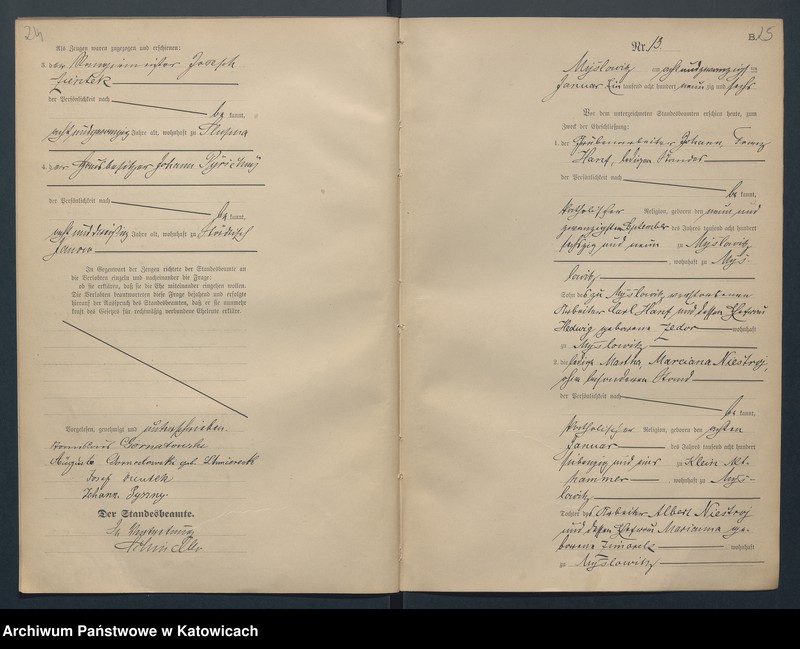 24
Als Zeugen waren zugezogen und erschienen:
3. der Joseph
der Persönlichkeit nach
be kannt,
acht und zwanzig Jahre alt, wohnhaft zu
4. der Hausbesitzer Johann
der Persönlichkeit nach
be kannt,
acht und dreißig Jahre alt, wohnhaft zu
Janow
In Gegenwart der Zeugen richtete der Standesbeamte an
die Verlobten einzeln und nacheinander die Frage:
ob sie erklären, daß sie die Ehe miteinander eingehen wollen.
Die Verlobten beantworteten diese Frage bejahend und erfolgte
hierauf der Ausspruch des Standesbeamten, daß er sie nunmehr
kraft des Gesetzes für rechtmäßig verbundene Eheleute erkläre.
Vorgelesen, genehmigt und unterschrieben.
Augusta geb.
Josef
Johann
Der Standesbeamte.
In Vertretung
Nr. 13.
B.
25
Myslowitz am acht und zwanzigsten
Januar Ein tausend acht hundert neun zig und sechs
Vor dem unterzeichneten Standesbeamten erschien heute, zum
Zweck der Eheschließung:
1. der Grubenarbeiter Johann Franz
Hanf, ledigen Standes
der Persönlichkeit nach
be kannt,
katholischer Religion, geboren den neun und
zwanzigsten September des Jahres tausend acht hundert
sechszig und neun zu Myslowitz
, wohnhaft zu Mys-
lowitz
Sohn des zu Myslowitz verstorbenen
Arbeiter Carl Hanf und dessen Ehefrau
Hedwig geborene wohnhaft
zu Myslowitz
2. die ledige Martha Marciana Niestroj,
ohne besonderen Stand
der Persönlichkeit nach
be kannt,
katholischer Religion, geboren den achten
Januar des Jahres tausend acht hundert
siebenzig und zu Klein
hammer , wohnhaft zu Mys-
lowitz
Tochter des Arbeiter Albert Niestroj
und dessen Ehefrau Marianna ge-
borene wohnhaft
zu Myslowitz
Archiwum Państwowe w Katowicach